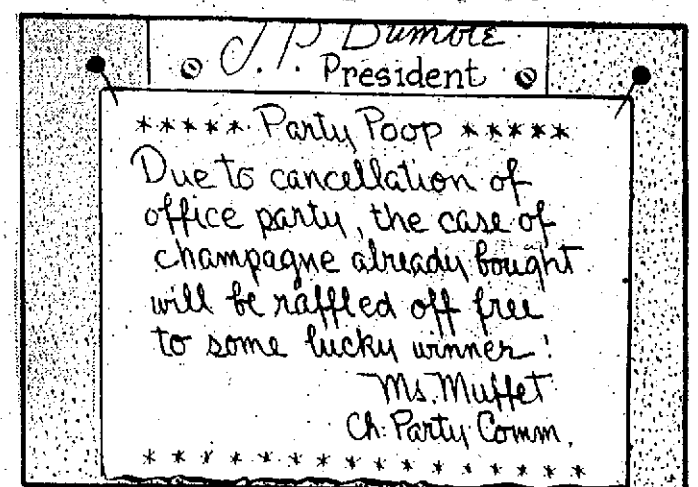 J.P. Bumble
President
***** Party Poop *****
Due to cancellation of
office party, the case of
champagne already bought
will be raffled off free
to some lucky winner!
Ms. Muffet
Ch. Party Comm.
* * * * * * * * * * * * * *